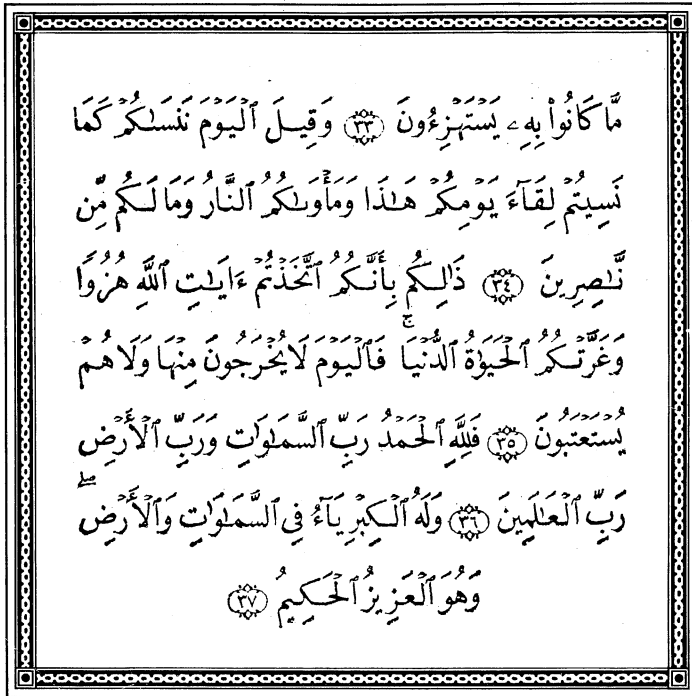 مَّا كَانُوا۟ بِهِۦ يَسْتَهْزِءُونَ ٣٣ وَقِيلَ ٱلْيَوْمَ نَنسَىٰكُمْ كَمَا
نَسِيتُمْ لِقَآءَ يَوْمِكُمْ هَـٰذَا وَمَأْوَىٰكُمُ ٱلنَّارُ وَمَا لَكُم مِّن
نَّـٰصِرِينَ ٣٤ ذَٰلِكُم بِأَنَّكُمُ ٱتَّخَذْتُمْ ءَايَـٰتِ ٱللَّهِ هُزُوًا
وَغَرَّتْكُمُ ٱلْحَيَوٰةُ ٱلدُّنْيَا ۚ فَٱلْيَوْمَ لَا يُخْرَجُونَ مِنْهَا وَلَا هُمْ
يُسْتَعْتَبُونَ ٣٥ فَلِلَّهِ ٱلْحَمْدُ رَبِّ ٱلسَّمَـٰوَٰتِ وَرَبِّ ٱلْأَرْضِ
رَبِّ ٱلْعَـٰلَمِينَ ٣٦ وَلَهُ ٱلْكِبْرِيَآءُ فِى ٱلسَّمَـٰوَٰتِ وَٱلْأَرْضِ ۖ
وَهُوَ ٱلْعَزِيزُ ٱلْحَكِيمُ ٣٧